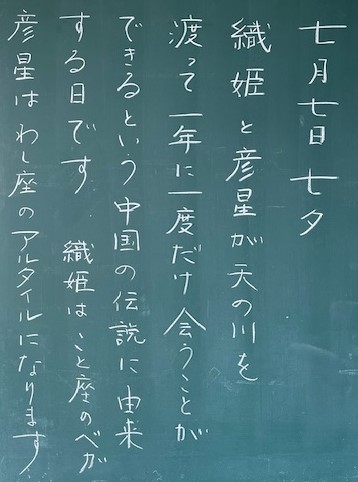 七月七日 七夕
織姫と彦星が天の川を
渡って一年に一度だけ会うことが
できるという中国の伝説に由来
する日です 織姫はこと座のベガ
彦星はわし座のアルタイルになります。